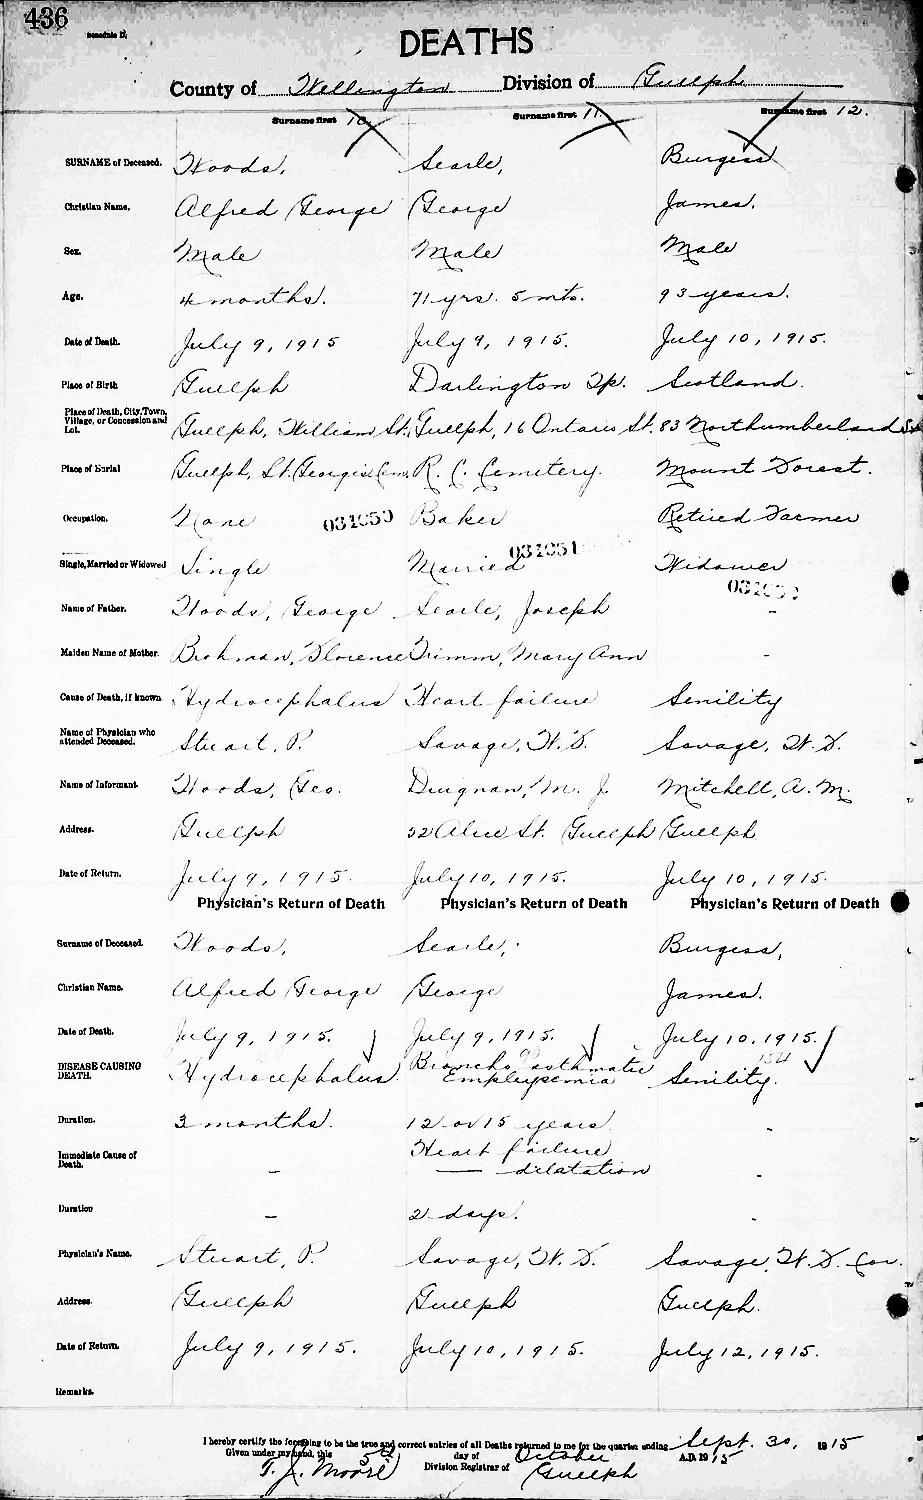 436
Schedule D.
DEATHS
County of Wellington Division of Guelph
Surname first 10. Surname first 11. Surname first 12.
SURNAME of Deceased. Woods, Searle, Burgess
Christian Name. Alfred George George James.
Sex. Male Male Male
Age. 4 months. 71 yrs. 5 mts. 93 years.
Date of Death. July 9, 1915 July 9, 1915. July 10, 1915.
Place of Birth Guelph Darlington Tp. Scotland.
Place of Death, City, Town,
Village, or Concession and
Lot. Guelph, William St. Guelph, 16 Ontario St. 83 Northumberland St.
Place of Burial Guelph, St. Georges Cem. R. C. Cemetery. Mount Forest.
Occupation. None 031050 Baker Retired Farmer
Single, Married or Widowed Single Married 031051 Widower
Name of Father. Woods, George Searle, Joseph -
Maiden Name of Mother. Brohman, Florence Trimm, Mary Ann -
Cause of Death, if known. Hydrocephalus Heart failure Senility
Name of Physician who
attended Deceased. Stuart, P. Savage, W. F. Savage, W. F.
Name of Informant. Woods, Geo. Duignan, M. J. Mitchell, A. M.
Address. Guelph 52 Alice St. Guelph Guelph
Date of Return. July 9, 1915. July 10, 1915. July 10, 1915.
Physician's Return of Death Physician's Return of Death Physician's Return of Death
Surname of Deceased. Woods, Searle, Burgess,
Christian Name. Alfred George George James.
Date of Death. July 9, 1915. July 9, 1915. July 10, 1915.
154
DISEASE CAUSING
DEATH. Hydrocephalus. Broncho asthmatic
Empheysemia Senility.
Duration. 3 months. 12 or 15 years -
Immediate Cause of
Death. - Heart failure
— dilatation -
Duration - 2 days. -
Physician's Name. Stuart, P. Savage, W. F. Savage, W. F. Cor.
Address. Guelph Guelph Guelph.
Date of Return. July 9, 1915. July 10, 1915. July 12, 1915.
Remarks.
I hereby certify the foregoing to be the true and correct entries of all Deaths returned to me for the quarter ending Sept. 30, 1915
Given under my hand, this 5th day of October A.D. 1915
T. J. Moore Division Registrar of Guelph